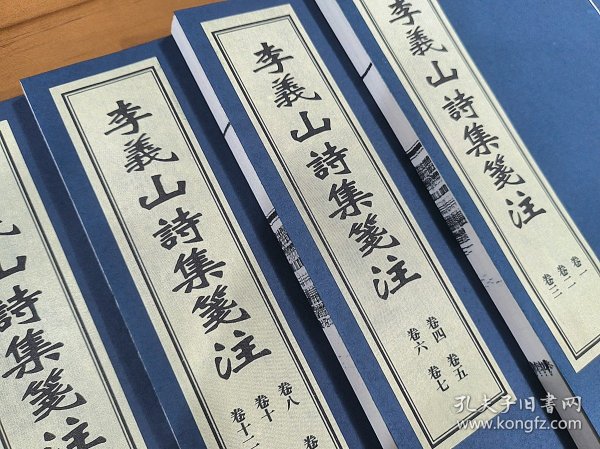 李義山詩集箋注
卷一
卷二
卷三
李義山詩集箋注
卷四
卷五
卷六
卷七
李義山詩集箋注
卷八
卷十
卷十二
山詩集箋注
孔夫子旧书网
www.kongfz.com